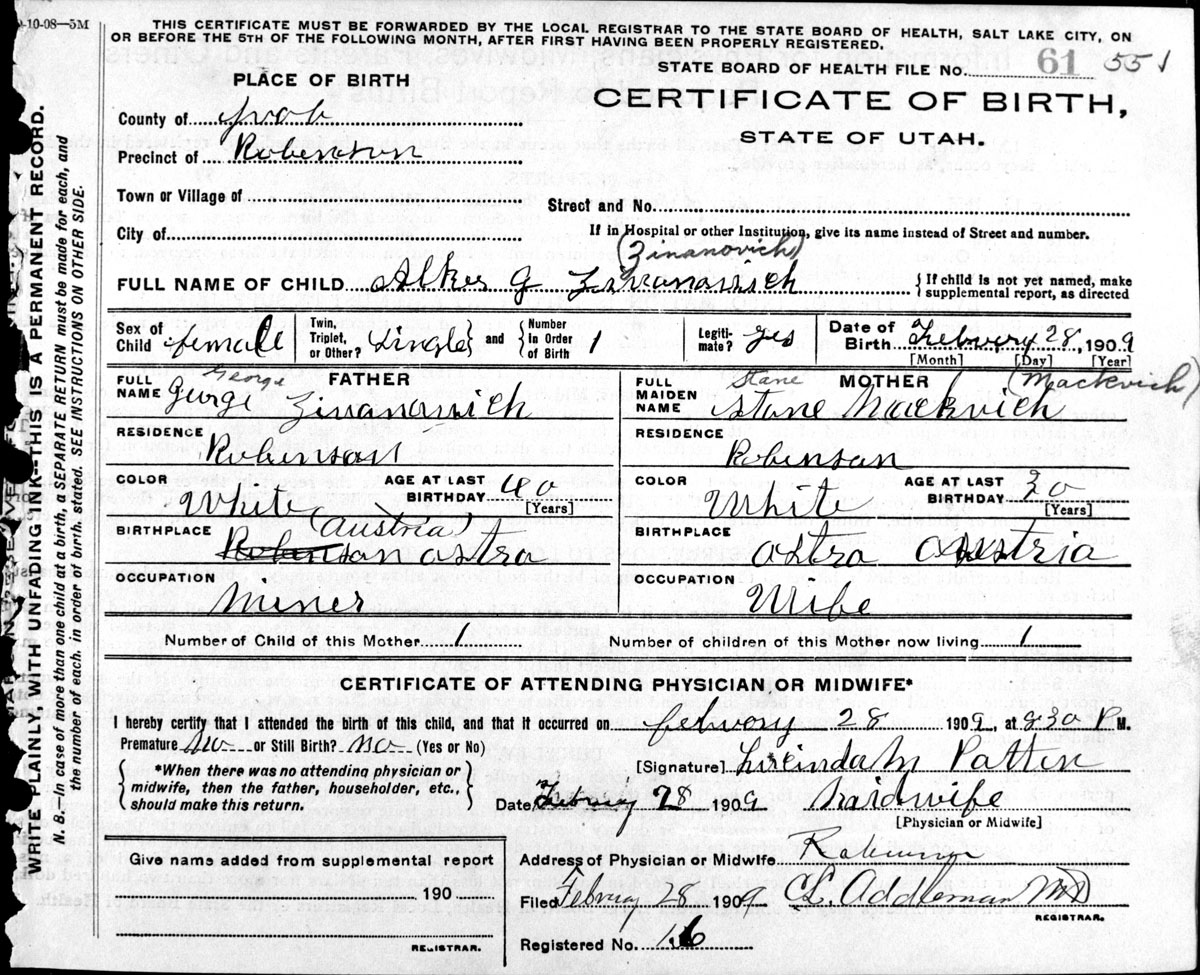 9-10-08—5M
THIS CERTIFICATE MUST BE FORWARDED BY THE LOCAL REGISTRAR TO THE STATE BOARD OF HEALTH, SALT LAKE CITY, ON
OR BEFORE THE 5TH OF THE FOLLOWING MONTH, AFTER FIRST HAVING BEEN PROPERLY REGISTERED.
STATE BOARD OF HEALTH FILE No. 61 551
PLACE OF BIRTH
CERTIFICATE OF BIRTH,
STATE OF UTAH.
County of Jvab
Precinct of Robinson
Town or Village of
Street and No.
City of
If in Hospital or other Institution, give its name instead of Street and number.
(Zinanovich)
FULL NAME OF CHILD Alker G Zivanawich { If child is not yet named, make supplemental report, as directed
Sex of Child female | Twin, Triplet, or Other? Single } and { Number in Order of Birth 1 | Legiti-mate? yes | Date of Birth Febuery 28, 1909
[Month] [Day] [Year]
FULL NAME FATHER George
George Zivanawich
RESIDENCE
Robinson
COLOR White AGE AT LAST BIRTHDAY 40 [Years]
BIRTHPLACE (Austria)
Robinson astra
OCCUPATION
Miner
FULL MAIDEN NAME MOTHER Stane (Mackvich)
Stane Mackvich
RESIDENCE
Robinson
COLOR White AGE AT LAST BIRTHDAY 30 [Years]
BIRTHPLACE
astra Austria
OCCUPATION
Wife
Number of Child of this Mother 1 Number of children of this Mother now living 1
CERTIFICATE OF ATTENDING PHYSICIAN OR MIDWIFE*
I hereby certify that I attended the birth of this child, and that it occurred on febuory 28 1909, at 830 P M.
Premature no or Still Birth? no (Yes or No)
[Signature] Lucinda M Patten
{ *When there was no attending physician or midwife, then the father, householder, etc., should make this return. }
Date Febuery 28 1909 midwife
[Physician or Midwife]
Give name added from supplemental report
Address of Physician or Midwife Robinson
190
Filed Febury 28 1909 CL. Addleman MD
REGISTRAR.
REGISTRAR.
Registered No. 16
WRITE PLAINLY, WITH UNFADING INK--THIS IS A PERMANENT RECORD.
N. B.—In case of more than one child at a birth, a SEPARATE RETURN must be made for each, and
the number of each, in order of birth, stated. SEE INSTRUCTIONS ON OTHER SIDE.